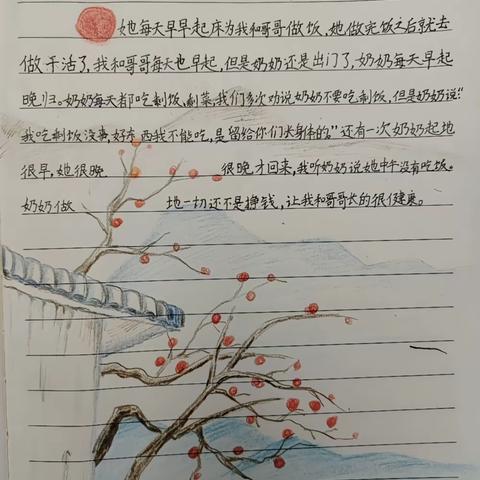 她每天早早起床为我和哥哥做饭,她做完饭之后就去
做干活了,我和哥哥每天也早起,但是奶奶还是出门了,奶奶每天早起
晚归。奶奶每天都吃剩饭、剩菜,我们多次劝说奶奶不要吃剩饭,但是奶奶说:“
我吃剩饭没事,好东西我不能吃,是留给你们长身体的。”还有一次奶奶起地
很早,她很晚 很晚才回来,我听奶奶说她中午没有吃饭。
奶奶做 地一切还不是挣钱,让我和哥哥长的很健康。